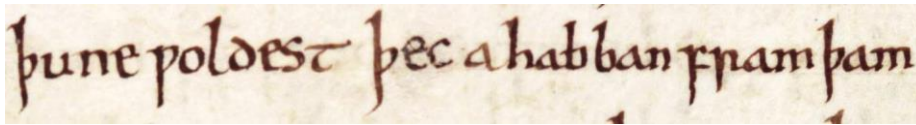 þune ƿoldest þec ahabban fram þam